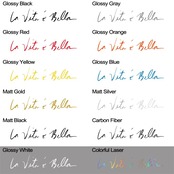 Glossy Black Glossy Gray
La Vita è Bella La Vita è Bella
Glossy Red Glossy Orange
La Vita è Bella La Vita è Bella
Glossy Yellow Glossy Blue
La Vita è Bella La Vita è Bella
Matt Gold Matt Silver
La Vita è Bella La Vita è Bella
Matt Black Carbon Fiber
La Vita è Bella La Vita è Bella
Glossy White Colorful Laser
La Vita è Bella La Vita è Bella